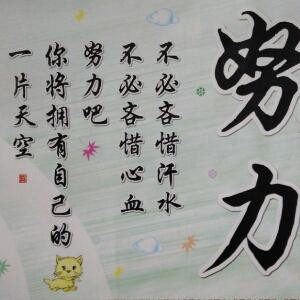 努力
不必吝惜汗水
不必吝惜心血
努力吧
你将拥有自己的
一片天空